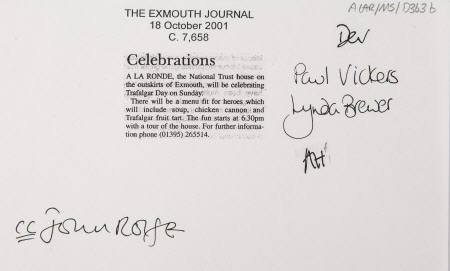 ALAR/MS/D363b
THE EXMOUTH JOURNAL
18 October 2001
C. 7,658
Celebrations
A LA RONDE, the National Trust house on
the outskirts of Exmouth, will be celebrating
Trafalgar Day on Sunday.
There will be a menu fit for heroes which
will include soup, chicken cannon and
Trafalgar fruit tart. The fun starts at 6:30pm
with a tour of the house. For further informa-
tion phone (01395) 265514.
Dev
Paul Vickers
Lynda Brewer
AH
cc John Rolfe